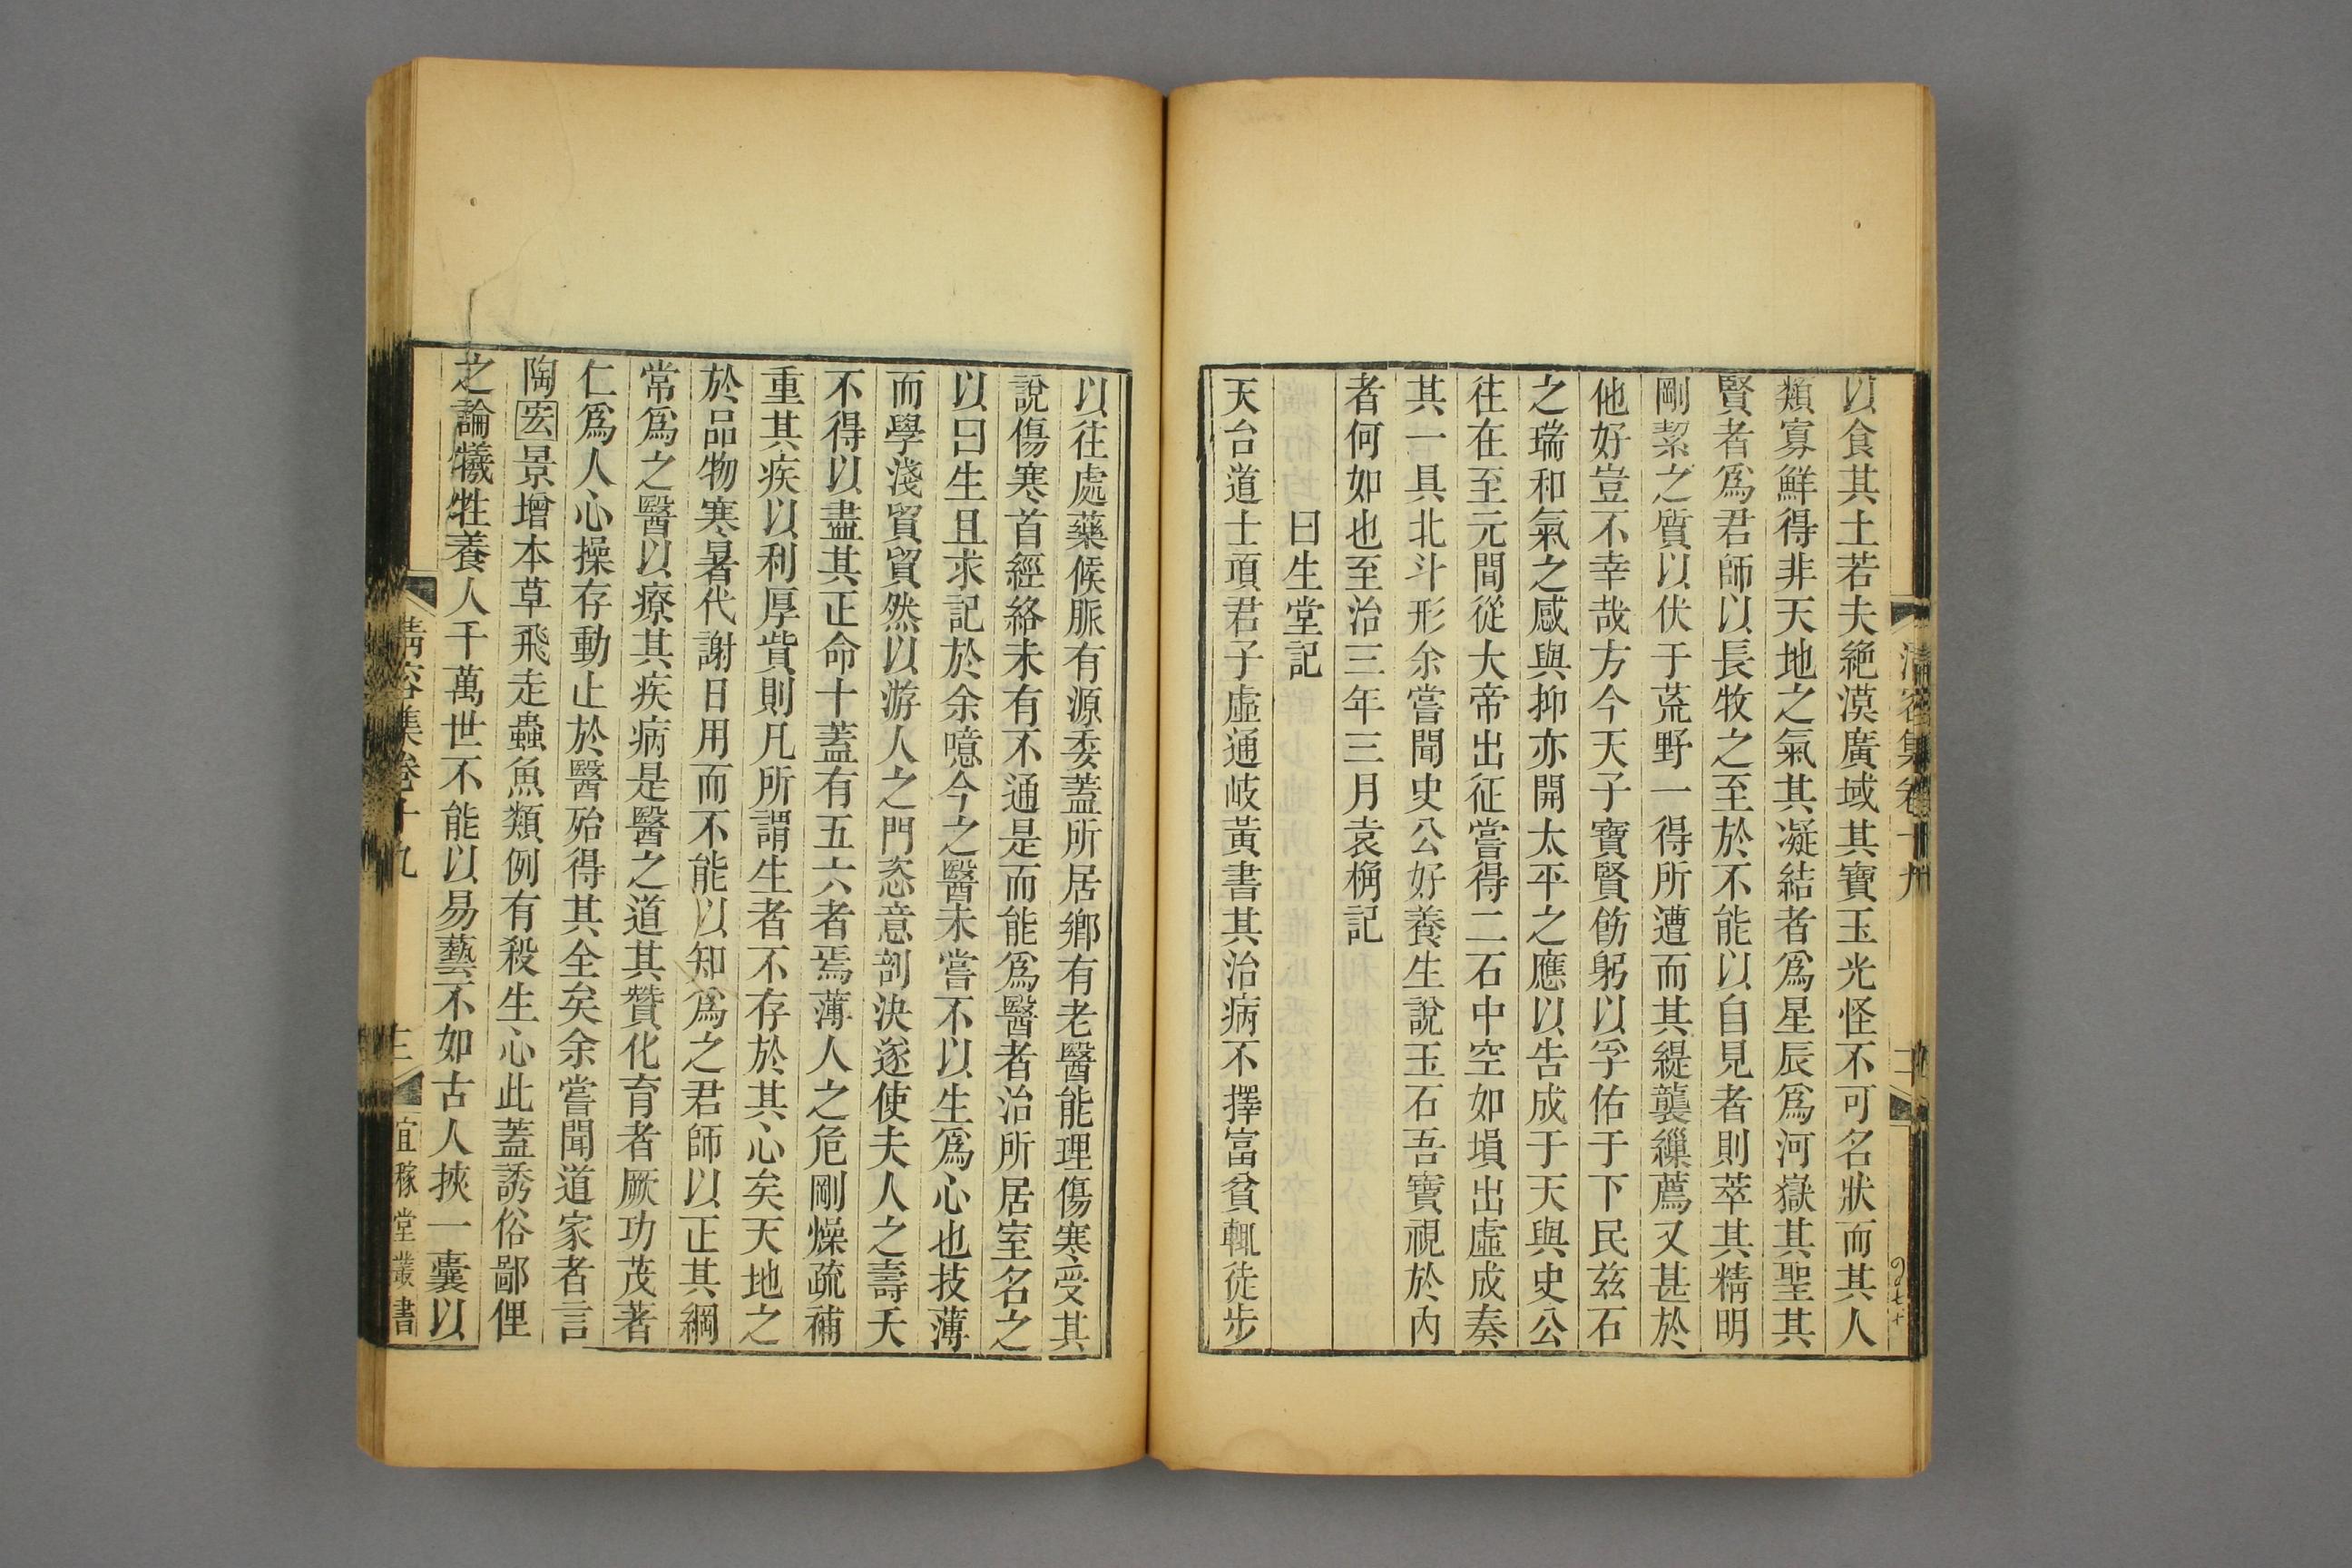 清容集卷十九
二
以食其土若夫絶漠廣域其寶玉光怪不可名狀而其人
類寡鮮得非天地之氣其凝結者爲星辰爲河嶽其聖其
賢者爲君師以長牧之至於不能以自見者則萃其精明
剛絜之質以伏于荒野一得所遭而其緹襲繅薦又甚於
他好豈不幸哉方今天子寶賢飭躬以孚佑于下民茲石
之瑞和氣之感與抑亦開太平之應以告成于天與史公
往在至元間從大帝出征嘗得二石中空如塤出虛成奏
其一具北斗形余嘗聞史公好養生說玉石吾寶視於內
者何如也至治三年三月袁桷記
曰生堂記
天台道士項君子虛通岐黃書其治病不擇富貧輒徒步
以往處藥候脈有源委蓋所居鄉有老醫能理傷寒受其
說傷寒首經絡未有不通是而能爲醫者治所居室名之
以曰生且求記於余噫今之醫未嘗不以生爲心也技薄
而學淺貿貿然以游人之門恣意剖決遂使夫人之壽夭
不得以盡其正命十蓋有五六者焉薄人之危剛燥疏補
重其疾以利厚貲則凡所謂生者不存於其心矣天地之
於品物寒暑代謝日用而不能以知爲之君師以正其綱
常爲之醫以療其疾病是醫之道其贊化育者厥功茂著
仁爲人心操存動止於醫殆得其全矣余嘗聞道家者言
陶宏景增本草飛走蟲魚類例有殺生心此蓋誘俗鄙俚
之論犧牲養人千萬世不能以易藝不如古人挾一囊以
清容集卷十九
三
宜稼堂叢書